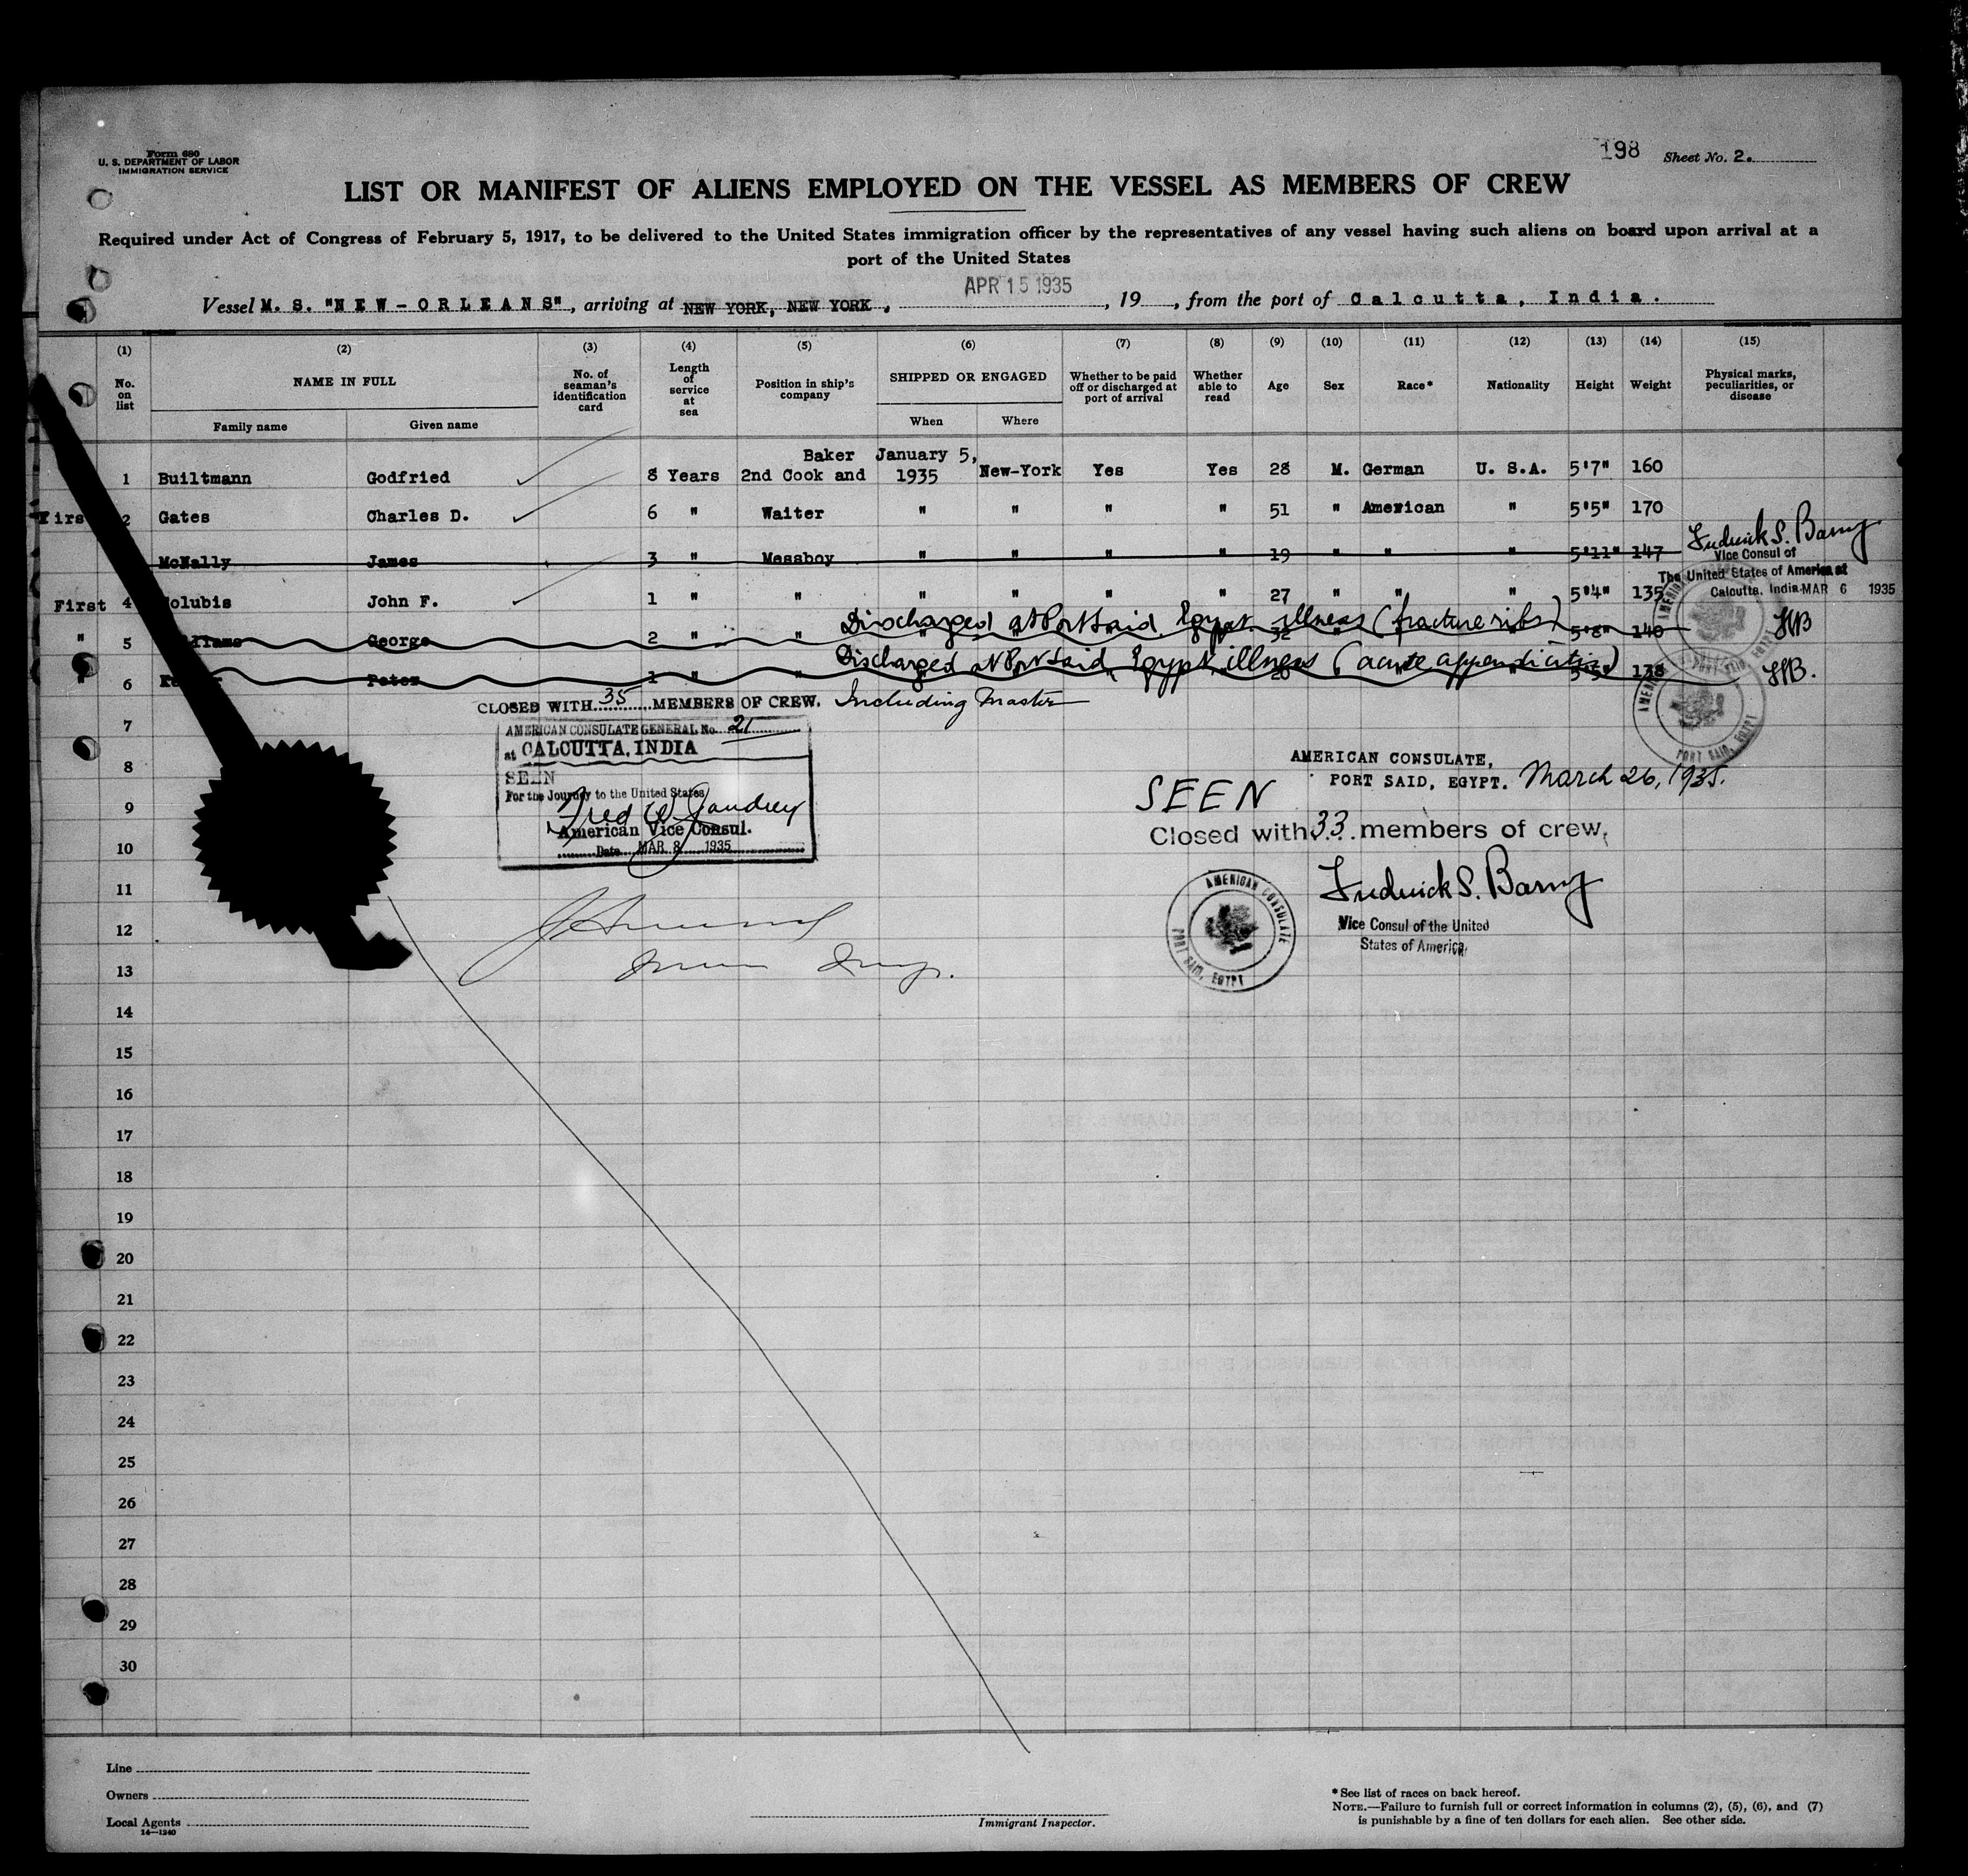 Form 680
U. S. DEPARTMENT OF LABOR
IMMIGRATION SERVICE
198 Sheet No. 2.
LIST OR MANIFEST OF ALIENS EMPLOYED ON THE VESSEL AS MEMBERS OF CREW
Required under Act of Congress of February 5, 1917, to be delivered to the United States immigration officer by the representatives of any vessel having such aliens on board upon arrival at a
port of the United States
APR 15 1935
Vessel M. S. "NEW-ORLEANS", arriving at NEW YORK, NEW YORK, , 19 , from the port of Calcutta, India.
(1) (2) (3) (4) (5) (6) (7) (8) (9) (10) (11) (12) (13) (14) (15)
No. on list NAME IN FULL No. of seaman's identification card Length of service at sea Position in ship's company SHIPPED OR ENGAGED Whether to be paid off or discharged at port of arrival Whether able to read Age Sex Race* Nationality Height Weight Physical marks, peculiarities, or disease
Family name Given name When Where
Baker January 5,
1 Builtmann Godfried 8 Years 2nd Cook and 1935 New-York Yes Yes 28 M. German U. S.A. 5'7" 160
First 2 Gates Charles D. 6 " Waiter " " " " 51 " American " 5'5" 170
McNally James 3 " Messboy " " " " 19 " " " 5'11" 147
Frederick S. Barny
Vice Consul of
The United States of America at
Calcutta, India MAR 6 1935
First 4 olubis John F. 1 " " " " " " 27 " " " 5'4" 135
Discharged at Port Said, Egypt. illness (fracture ribs) HB
" 5 lliams George 2 " " " " " " 32 " " " 5'8" 140
Discharged at Port Said, Egypt, illness (acute appendicitis) HB.
" 6 Peter 1 " " 138
AMERICAN CONSULATE PORT SAID, EGYPT
CLOSED WITH 35 MEMBERS OF CREW. Including Master
7
AMERICAN CONSULATE GENERAL No. 21
at CALCUTTA, INDIA
SEEN
For the Journey to the United States
American Vice Consul.
Date MAR 8 1935
AMERICAN CONSULATE,
PORT SAID, EGYPT. March 26, 1935.
SEEN
Closed with 33 members of crew,
Frederick S. Barny
Vice Consul of the United
States of America
AMERICAN CONSULATE PORT SAID, EGYPT
8
9
10
11
12
13
14
15
16
17
18
19
20
21
22
23
24
25
26
27
28
29
30
Line
Owners
Local Agents
14—1240
Immigrant Inspector.
*See list of races on back hereof.
NOTE.—Failure to furnish full or correct information in columns (2), (5), (6), and (7)
is punishable by a fine of ten dollars for each alien. See other side.